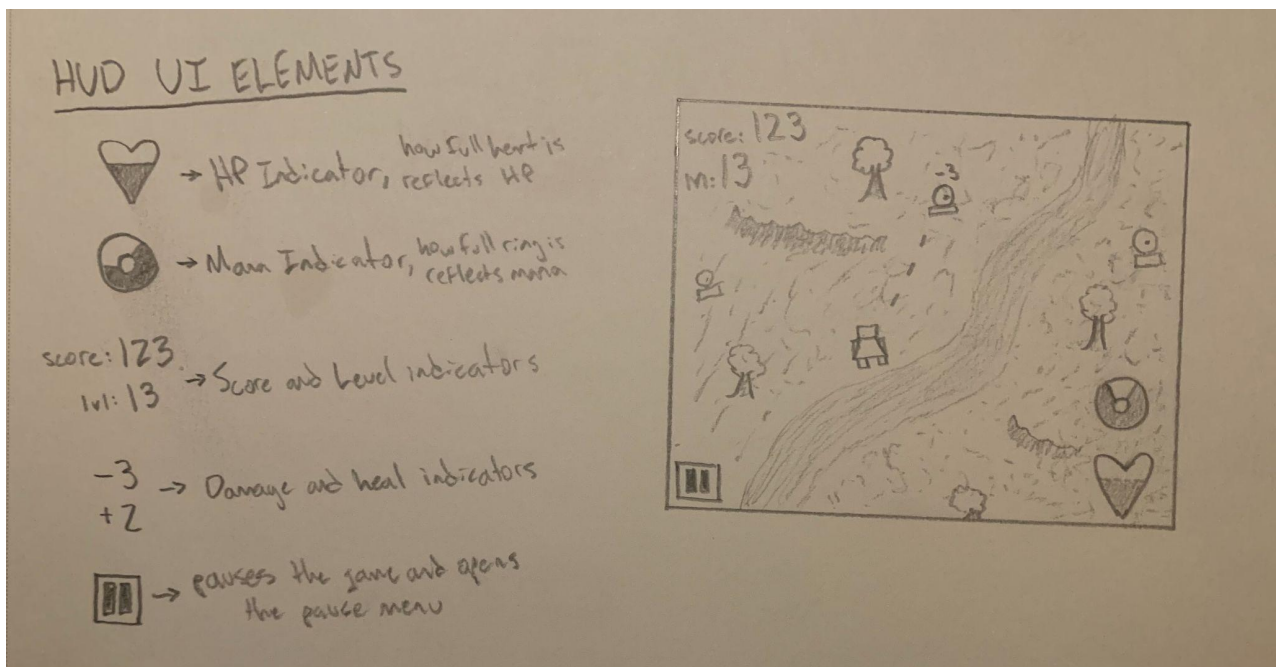 HUD UI ELEMENTS
→ HP Indicator, how full heart is
reflects HP
→ Mana Indicator, how full ring is
reflects mana
score: 123
lvl: 13
→ Score and Level indicators
-3
+2
→ Damage and heal indicators
→ pauses the game and opens
the pause menu
score: 123
13
-3